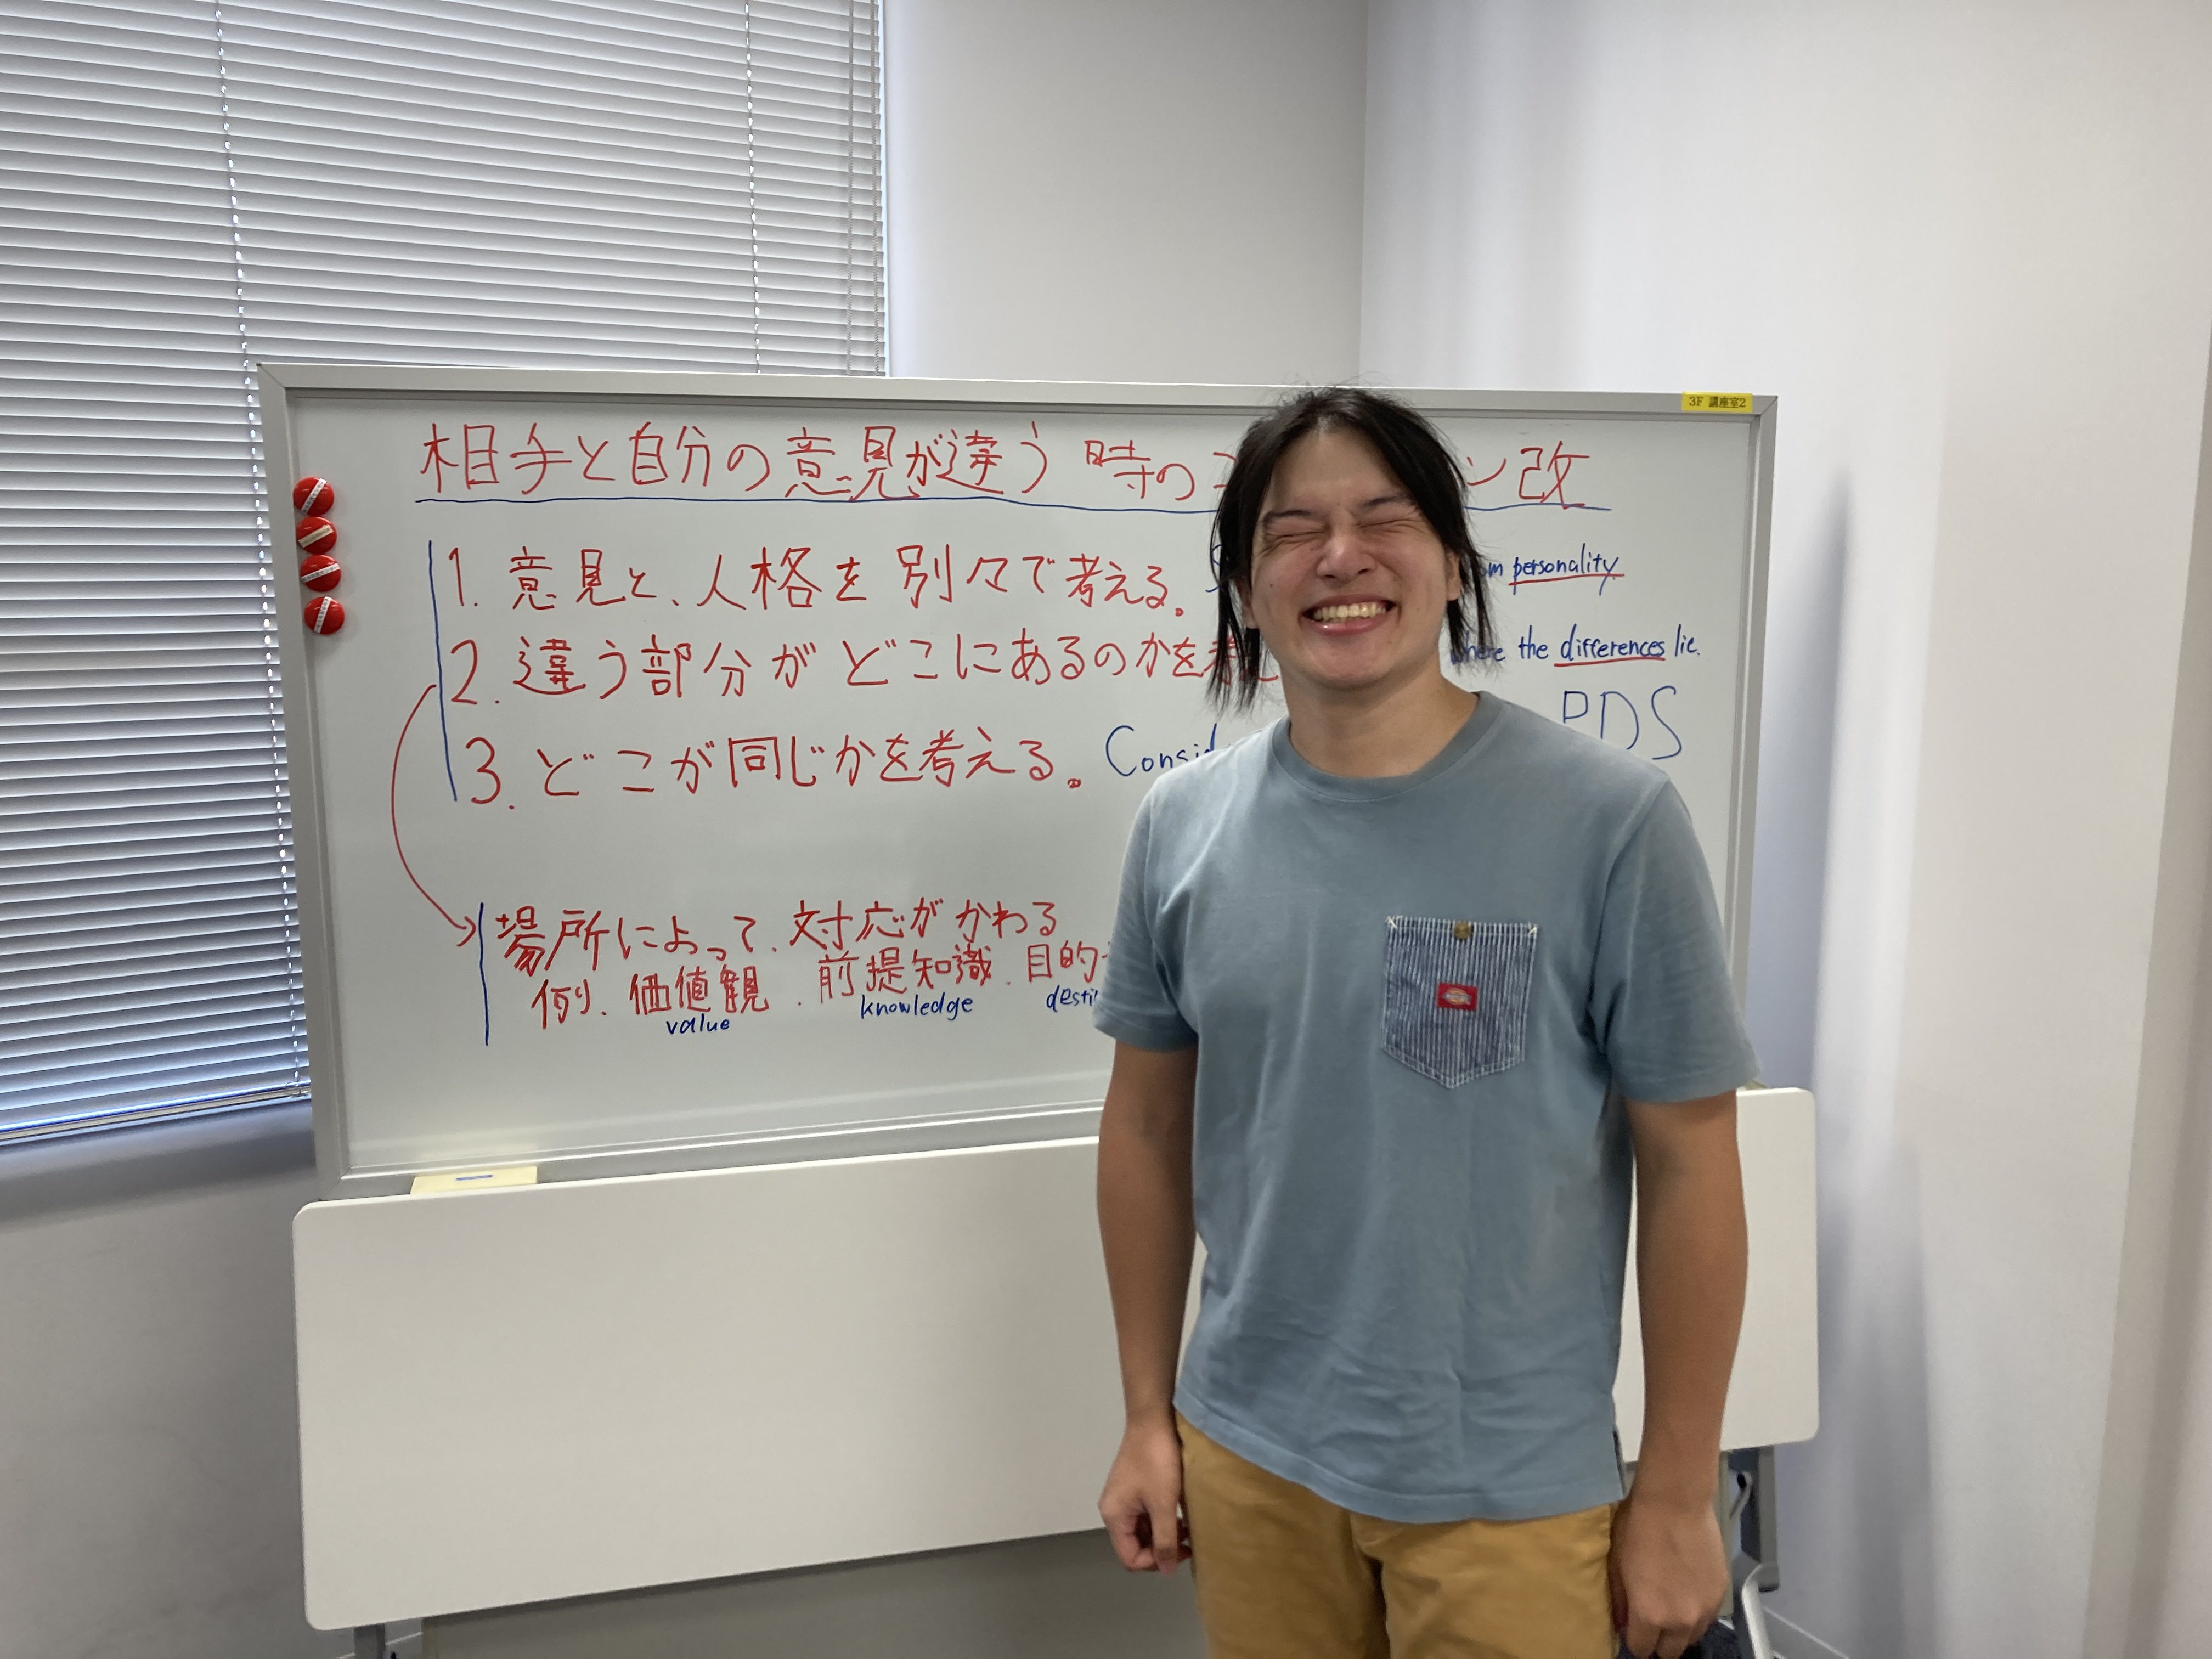 3F 講座室2
相手と自分の意見が違う時のコ ン改
1. 意見と、人格を別々で考える。 m personality
2. 違う部分がどこにあるのかを考え where the differences lie.
PDS
3. どこが同じかを考える。 Consid
場所によって、対応がかわる
例、価値観、前提知識、目的
value knowledge desti